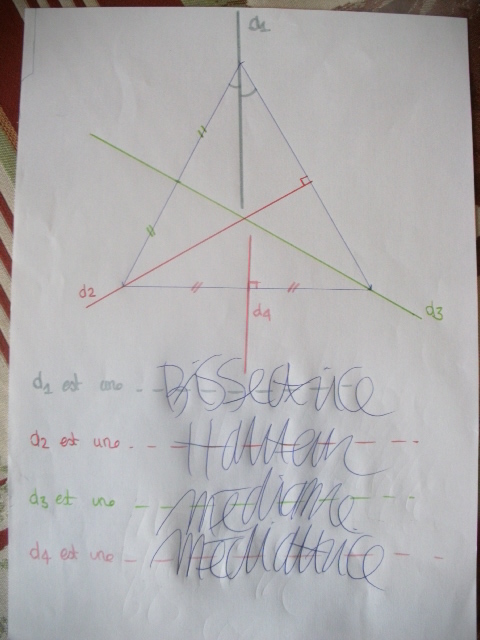 d1
d2
d3
d4
d1 est une Bissectrice
d2 est une Hauteur
d3 est une médiane
d4 est une médiatrice